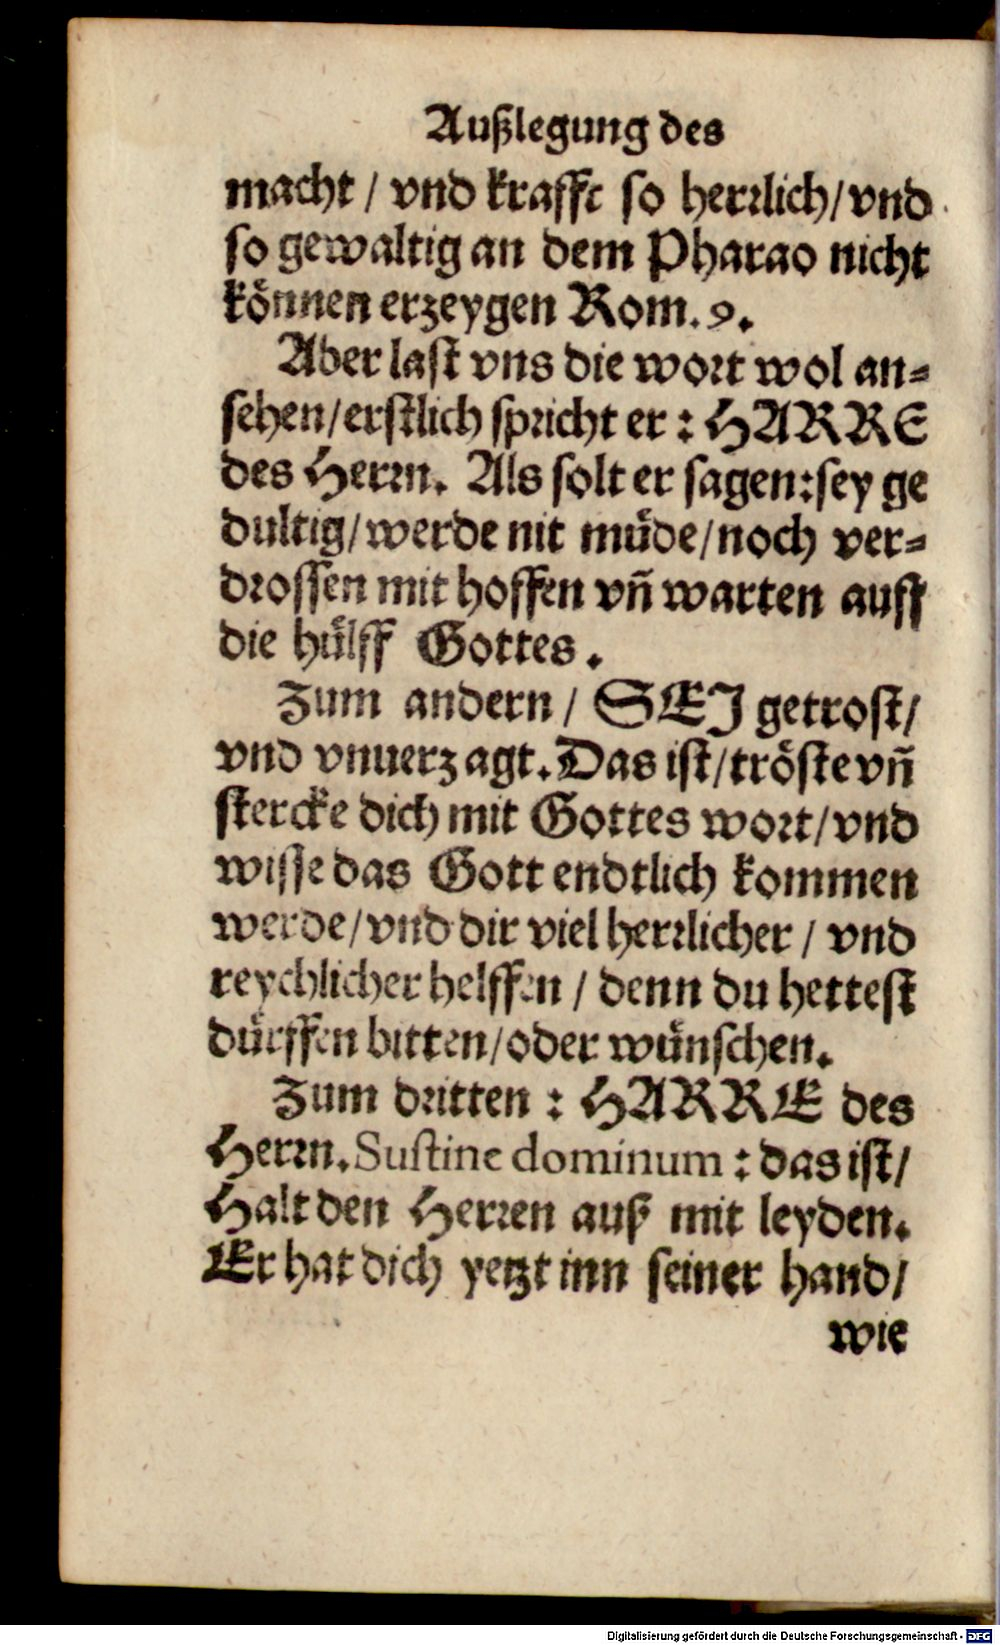 Außlegung des
macht / vnd krafft so herꝛlich / vnd
so gewaltig an dem Pharao nicht
können erzeygen Rom. 9.
Aber last vns die woꝛt wol an⸗
sehen / erstlich spꝛicht er : HARRE
des Herꝛn. Als solt er sagen : sey ge
dultig / werde nit müde / noch ver⸗
dꝛossen mit hoffen vñ warten auff
die hülff Gottes.
Zum andern / SEJ getrost /
vnd vnuerzagt. Das ist / tröste vñ
stercke dich mit Gottes woꝛt / vnd
wisse das Gott endtlich kommen
werde / vnd dir viel herꝛlicher / vnd
reychlicher helffen / denn du hettest
dürffen bitten / oder wünschen.
Zum dꝛitten : HARRE des
Herꝛn. Sustine dominum : das ist /
Halt den Herꝛen auß mit leyden.
Er hat dich yetzt inn seiner hand /
wie
Digitalisierung gefördert durch die Deutsche Forschungsgemeinschaft - DFG